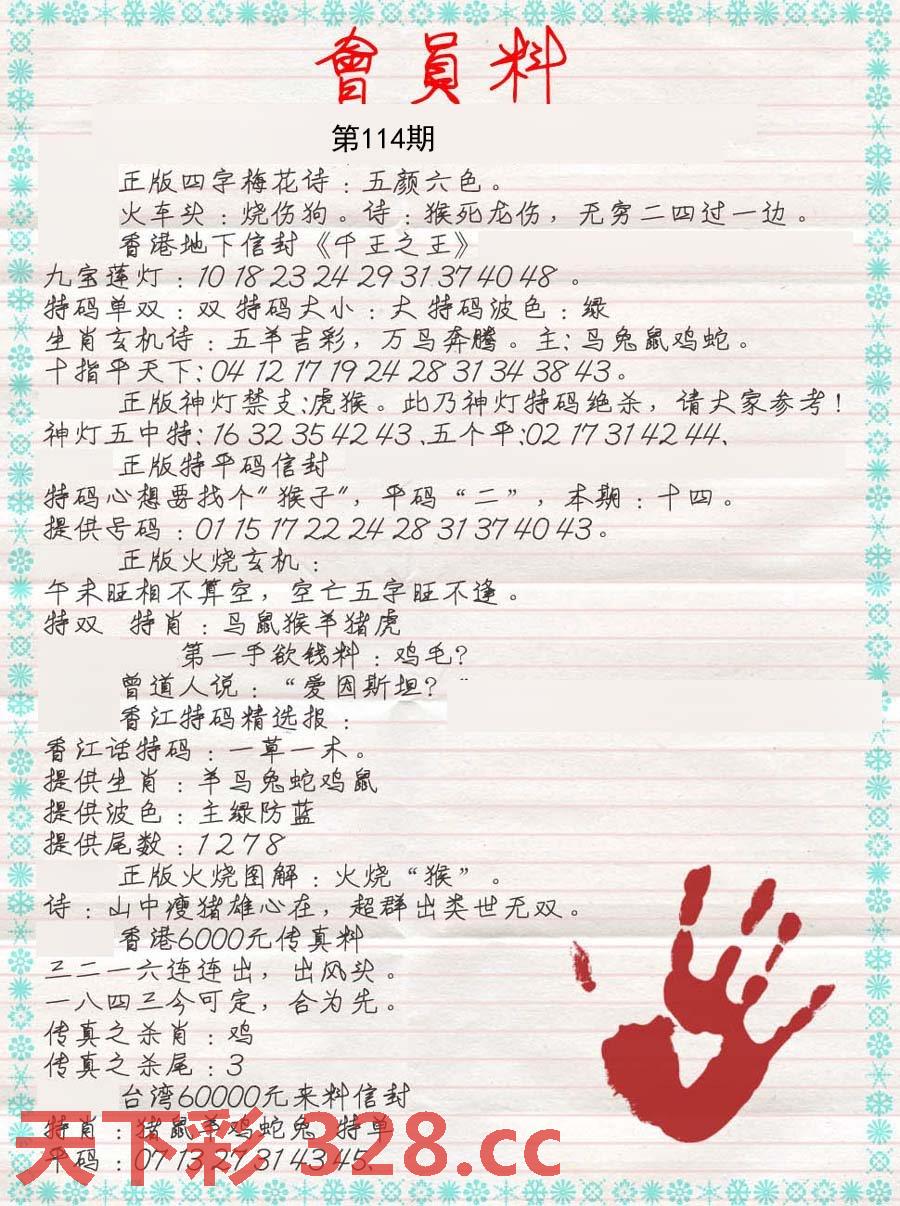 會員料
第114期
正版四字梅花诗：五颜六色。
火车头：烧伤狗。诗：猴死龙伤，无穷二四过一边。
香港地下信封《千王之王》
九宝莲灯：10 18 23 24 29 31 37 40 48 。
特码单双：双 特码大小：大 特码波色：绿
生肖玄机诗：五羊吉彩，万马奔腾。主：马兔鼠鸡蛇。
十指平天下：04 12 17 19 24 28 31 34 38 43。
正版神灯禁支:虎猴。此乃神灯特码绝杀，请大家参考！
神灯五中特：16 32 35 42 43、五个平:02 17 31 42 44、
正版特平码信封
特码心想要找个"猴子"，平码“二”，本期：十四。
提供号码：01 15 17 22 24 28 31 37 40 43。
正版火烧玄机：
午未旺相不算空，空亡五字旺不逢。
特双 特肖：马鼠猴羊猪虎
第一手欲钱料：鸡毛？
曾道人说：“爱因斯坦？”
香江特码精选报：
香江话特码：一草一木。
提供生肖：羊马兔蛇鸡鼠
提供波色：主绿防蓝
提供尾数：1 2 7 8
正版火烧图解：火烧“猴”。
诗：山中瘦猪雄心在，超群出类世无双。
香港6000元传真料
三二一六连连出，出风头。
一八四三今可定，合为先。
传真之杀肖：鸡
传真之杀尾：3
台湾60000元来料信封
特肖：猪鼠羊鸡蛇兔 特单
平码：07 13 27 31 43 45、
天下彩 328.cc